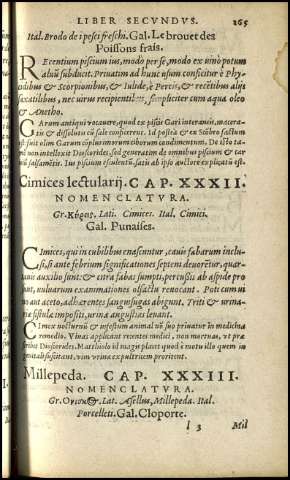 LIBER SECVNDVS. 265
Ital. Brodo de i pesci freschi. Gal. Le brouet des
Poissons frais.
REcentium piscium ius, modo per se, modo ex vino potum
aluũ subducit. Priuatim ad hunc usum conficitur è Phy-
cidibus & Scorpionibus, & Iulide, è Percis, & recētibus alijs
saxatilibus, nec virus recipientibus, simpliciter cum aqua oleo
& Anetho.
GArum antiqui vocauere, quod ex piscis Gari interaneis, macera-
tis & dissolutis cũ sale conficerent. Id postea & ex Scōbro factum
est fuit olim Garum in plurimorum ciborum condimentum. De isto ta-
men non intellexit Dioscorides, sed generatim de omnibus piscium & car
niũ salsamētis. Ius piscium esculentũ, satis ab ipso auctore explicatũ est.
Cimices lectularij. CAP. XXXII.
NOMENCLATVRA.
Gr. Κόρις, Lati. Cimices. Ital. Cimici.
Gal. Punaises.
CImices, qui in cubilibus enascuntur, cauis fabarum inclu-
si, si ante febrium significationes septem deuorētur, quar-
tanis auxilio sunt: & citra fabas sumpti, percussis ab aspide pro
sunt, vuluarum exanimationes olfactu reuocant. Poti cum ui
no aut aceto, adhærentes sanguisugas abigunt. Triti & urina-
riæ fistulæ impositi, urinæ angustias leuant.
CImex nocturnũ & infestum animal uĩ suo priuatur in medicina
remedio. Viuus applicant recentes medici, non mortuus, vt præ
scribit Dioscorides. Matthiolo id magis placet quod è motu illo quem in
genitali suscitant, vim vrinæ expultricem proritent.
Millepeda. CAP. XXXIII.
NOMENCLATVRA.
Gr. Ονισκος, Lat. Asellus, Millepeda. Ital.
Porcelleti. Gal. Cloporte.
l 3 Mil